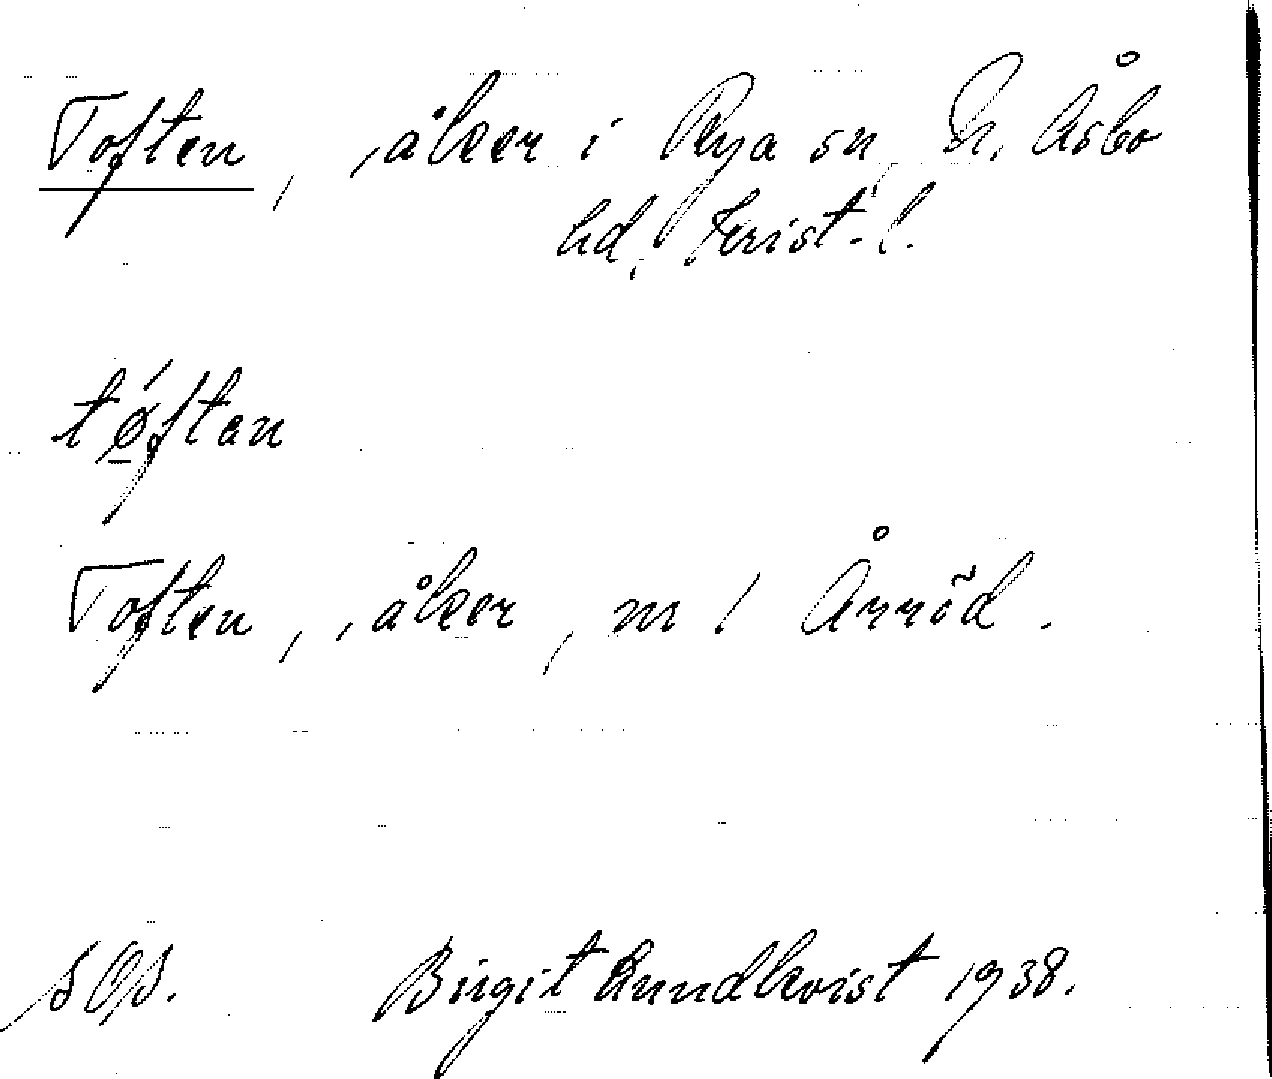 Toften, åker i Rya sn, N. Åsbo
hd, Krist. l.
tǿ̱ftan
Toften, åker, m / Årröd.
Birgit Lundkvist 1938.